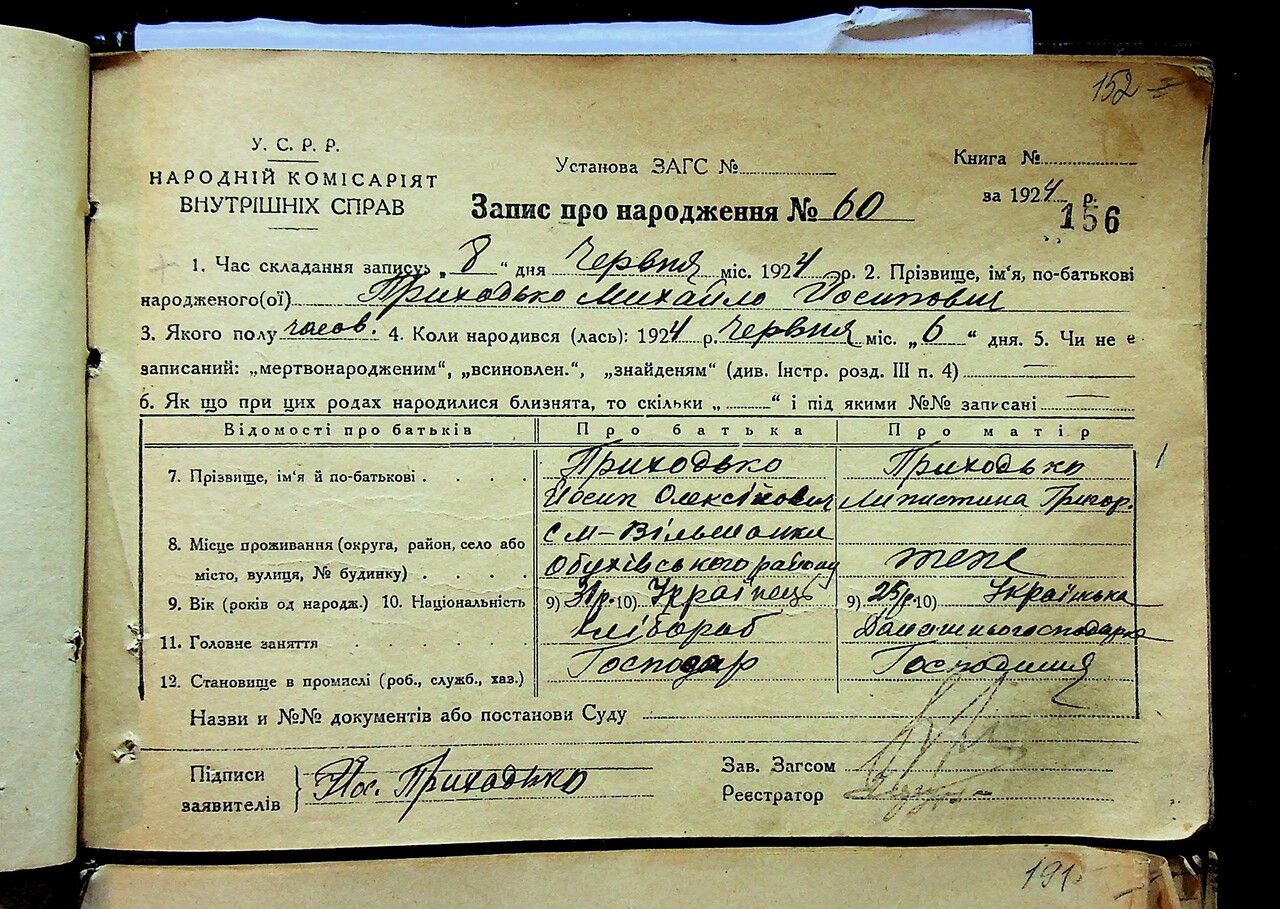 152
У. С. Р. Р.
НАРОДНІЙ КОМІСАРІЯТ
ВНУТРІШНІХ СПРАВ
Установа ЗАГС №
Книга №
за 1924 р.
156
Запис про народження № 60
1. Час складання запису: „8“ дня Червня міс. 1924 р. 2. Прізвище, ім'я, по-батькові
народженого(ої) Приходько Михайло Йосипович
3. Якого полу часов. 4. Коли народився (лась): 1924 р. Червня міс. „6“ дня. 5. Чи не є
записаний: „мертвонародженим“, „всиновлен.“, „знайденям“ (див. Інстр. розд. III п. 4)
6. Як що при цих родах народилися близнята, то скільки „ “ і під якими №№ записані
Відомості про батьків Про батька Про матір
7. Прізвище, ім'я й по-батькові Приходько Приходько
Йосип Олексійович Григор.
8. Місце проживання (округа, район, село або см-Вільшанки
місто, вулиця, № будинку) Обухівського району теж
9. Вік (років од народж.) 10. Національність 9) 31р. 10) Українець 9) 25р. 10) Українька
11. Головне заняття хлібороб Домашньогосподарка
12. Становище в промислі (роб., служб., хаз.) Господар Господиня
Назви и №№ документів або постанови Суду
Підписи
заявителів
Йос. Приходько
Зав. Загсом
Реєстратор
191